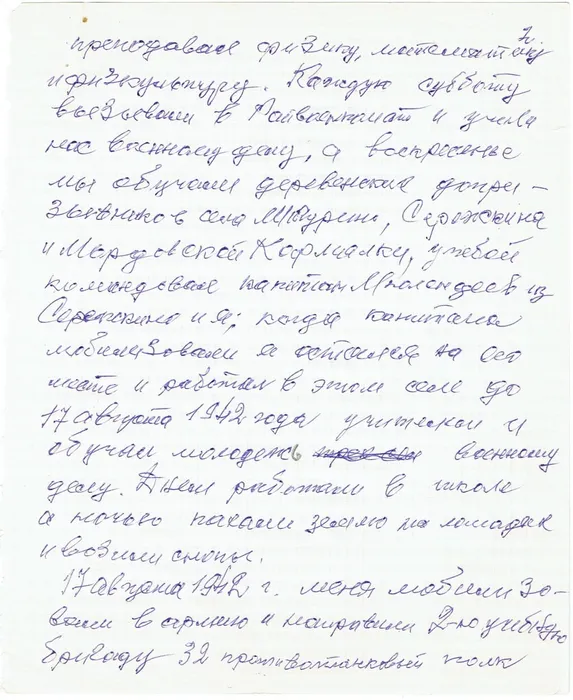 7.
преподавал физику, математику
и физкультуру. Каждую субботу
вызывали в Райвоенкомат и учили
нас военному делу, а воскресенье
мы обучали деревенских допри-
зывников села Сережкина
и Мордовской Кармалки, учебой
командовал капитан из
Сережкино и я; когда капитана
мобилизовали я остался на его
месте и работал в этом селе до
17 августа 1942 года учителем и
обучал молодежь военному
делу. Днем работали в школе
а ночью пахали землю на лошадях
и возили снопы.
17 августа 1942 г. меня мобилизо-
вали в армию и направили 2-ю учебную
бригаду 32 противотанковый полк